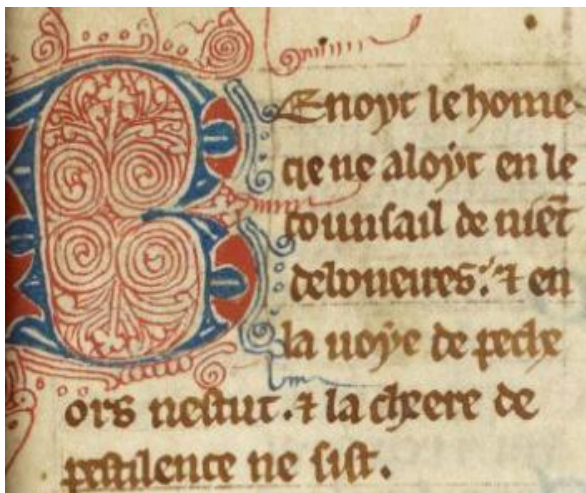 BEnoyt le home
qe ne aloyt en le
counsail de niet̄
deboneires: ⁊ en
la uoye de peche
ors nestut. ⁊ la cheere de
pestilence ne sist.